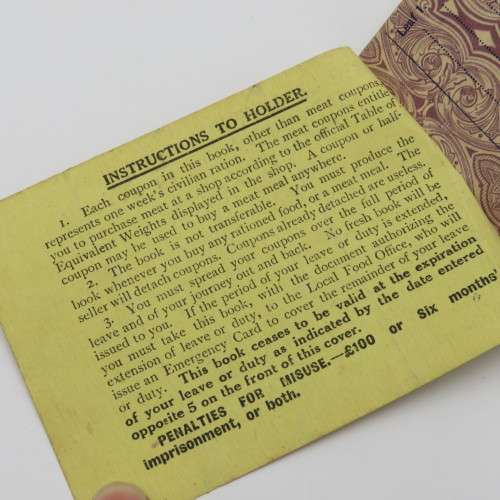 INSTRUCTIONS TO HOLDER.
1. Each coupon in this book, other than meat coupons,
represents one week's civilian ration. The meat coupons entitle
you to purchase meat at a shop according to the official Table of
Equivalent Weights displayed in the shop. A coupon or half-
coupon may be used to buy a meat meal anywhere.
2. The book is not transferable. You must produce the
book whenever you buy any rationed food, or a meat meal. The
seller will detach coupons. Coupons already detached are useless.
3. You must spread your coupons over the full period of
leave and of your journey out and back. No fresh book will be
issued to you. If the period of your leave or duty is extended,
you must take this book, with the document authorizing the
extension of leave or duty, to the Local Food Office, who will
issue an Emergency Card to cover the remainder of your leave
or duty. This book ceases to be valid at the expiration
of your leave or duty as indicated by the date entered
opposite 5 on the front of this cover.
PENALTIES FOR MISUSE.—£100 or Six months'
imprisonment, or both.
Leaf 1.